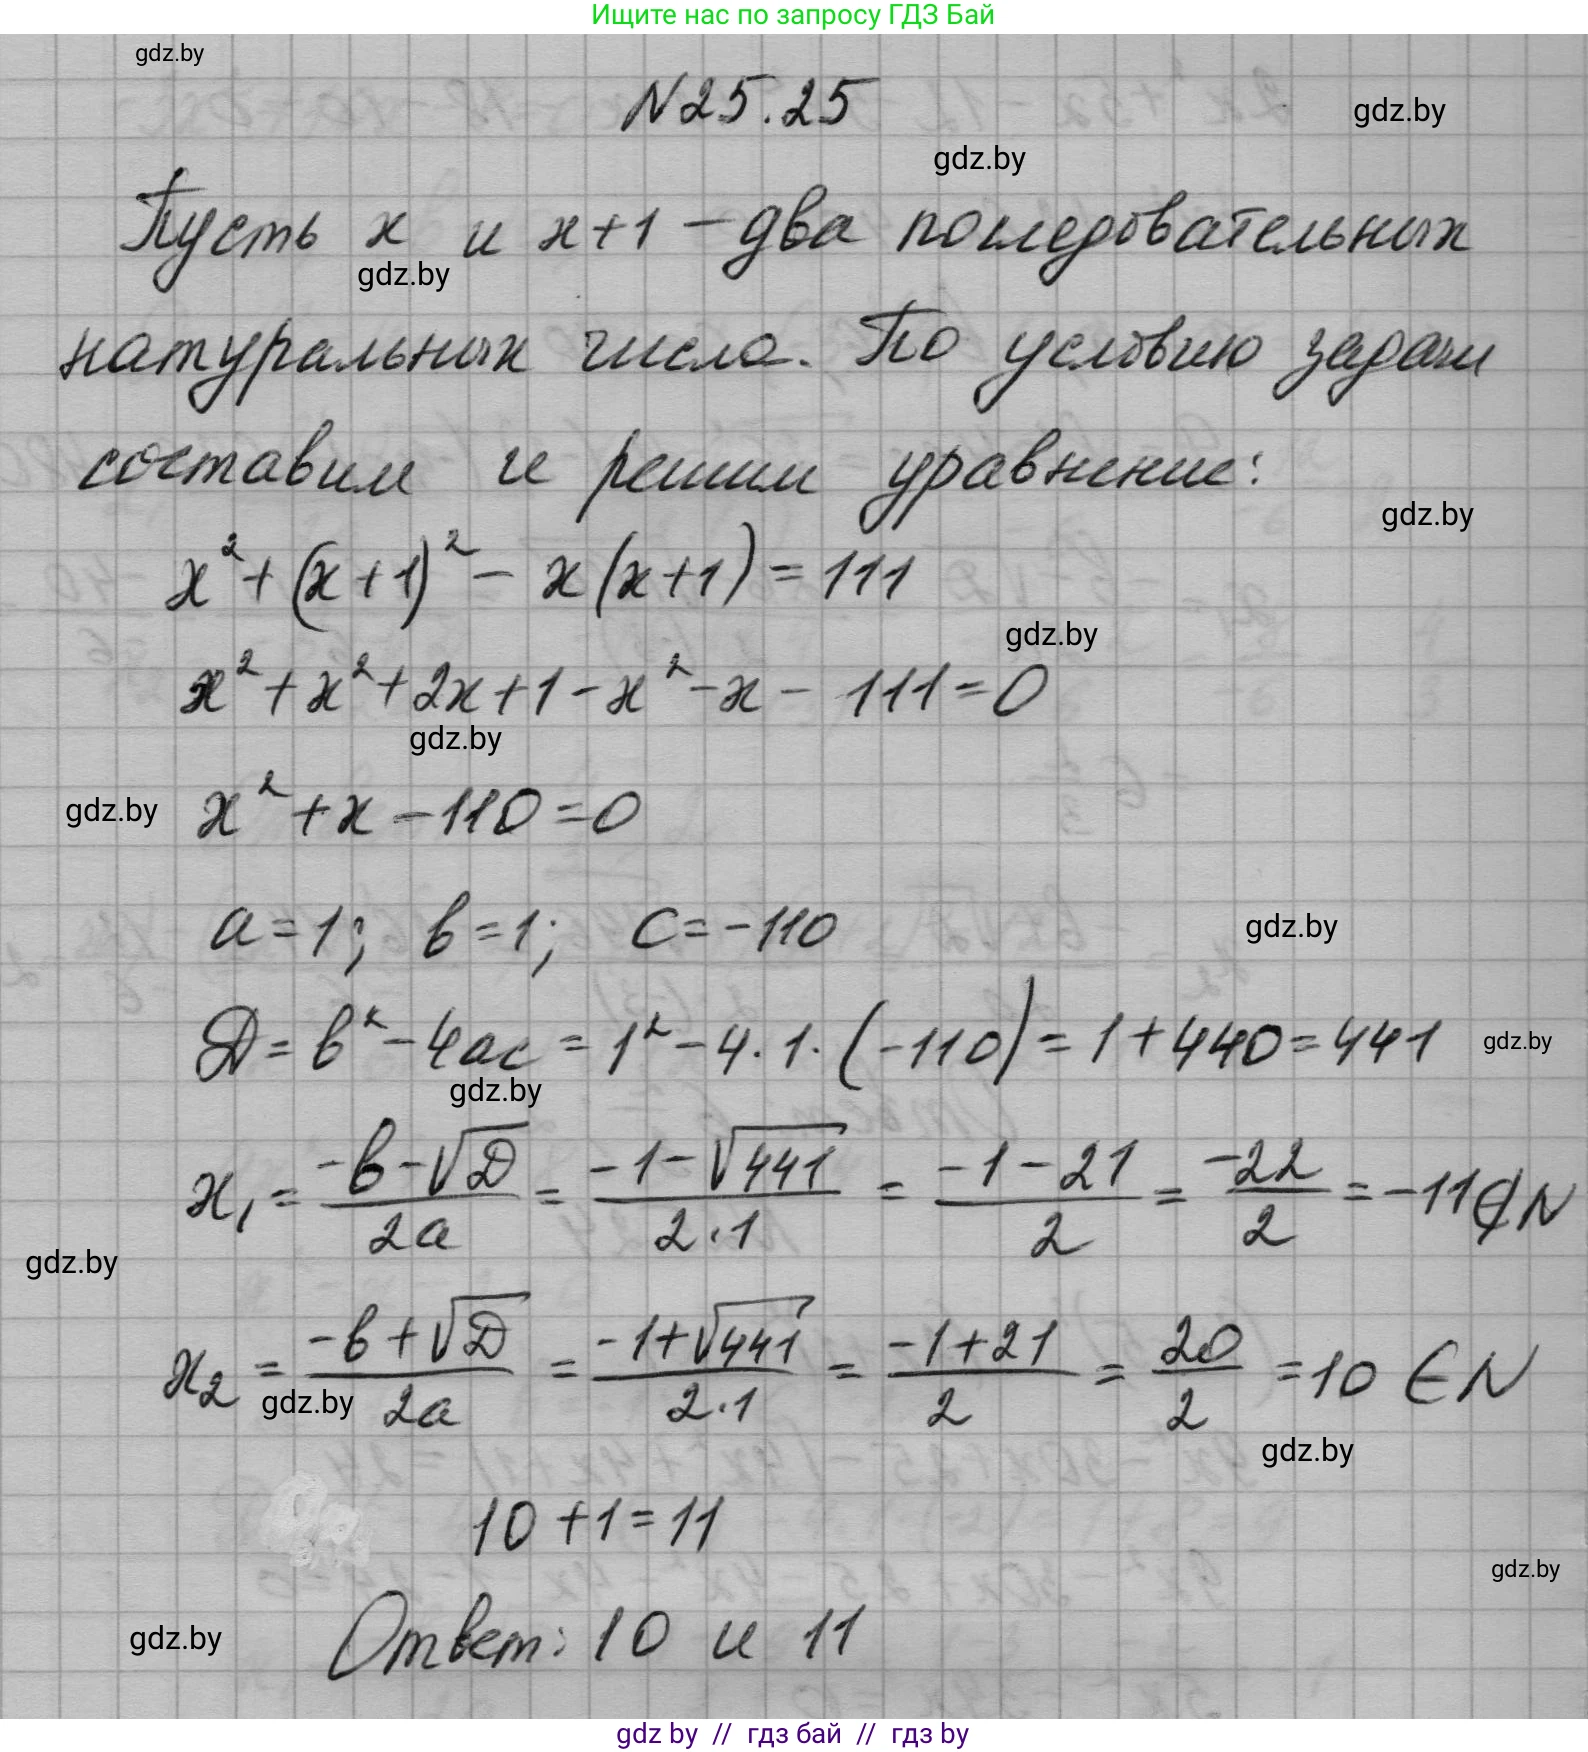 Ищите нас по запросу ГДЗ Бай
gdz.by
N25.25
gdz.by
gdz.by
Пусть x и x+1 – два последовательных
gdz.by
натуральных числа. По условию задачи
составим и решим уравнение:
gdz.by
x² + (x+1)² – x(x+1) = 111
gdz.by
x² + x² + 2x + 1 – x² – x – 111 = 0
gdz.by
gdz.by
x² + x – 110 = 0
a = 1; b = 1; c = –110
gdz.by
D = b² – 4ac = 1² – 4·1·(–110) = 1 + 440 = 441
gdz.by
gdz.by
x₁ = (–b – √D)/(2a) = (–1 – √441)/(2·1) = (–1 – 21)/2 = –22/2 = –11 ∉ N
gdz.by
x₂ = (–b + √D)/(2a) = (–1 + √441)/(2·1) = (–1 + 21)/2 = 20/2 = 10 ∈ N
gdz.by
gdz.by
10 + 1 = 11
gdz.by
Ответ: 10 и 11
gdz.by
gdz by // гдз бай // гдз by